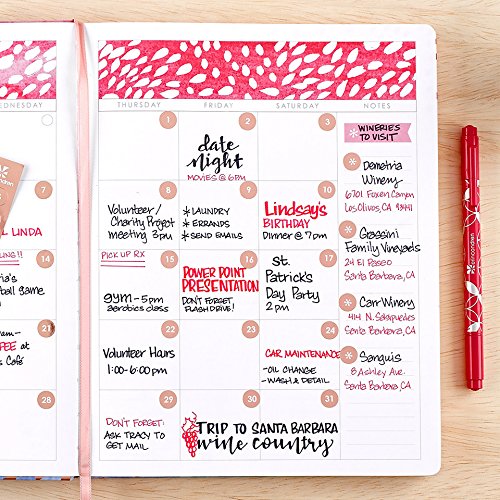 WEDNESDAY
THURSDAY
FRIDAY
SATURDAY
NOTES
1
2
date
night
MOVIES @ 6PM
3
WINERIES
TO VISIT
Demetria
Winery
6701 Foxen Canyon
Los Olivos, CA 93441
Grassini
Family Vineyards
24 El Paseo
Santa Barbara, CA
Carr Winery
414 N. Salsipuedes
Santa Barbara, CA
Sanguis
8 Ashley Ave.
Santa Barbara, CA
7
LINDA
8
Volunteer/
Charity Project
meeting 3pm
9
* LAUNDRY
* ERRANDS
* SEND EMAILS
10
Lindsay's
BIRTHDAY
Dinner @ 7pm
14
ball game
15
PICK UP RX
gym - 5pm
aerobics class
16
POWER POINT
PRESENTATION
DON'T FORGET
FLASH DRIVE!
17
St.
Patrick's
Day Party
2pm
21
am-
FFEE at
Café
22
Volunteer Hours
1:00-6:00pm
23
24
CAR MAINTENANCE
- OIL CHANGE
- WASH & DETAIL
28
29
DON'T FORGET:
ASK TRACY TO
GET MAIL
30
31
TRIP TO SANTA BARBARA
wine country
erincondren